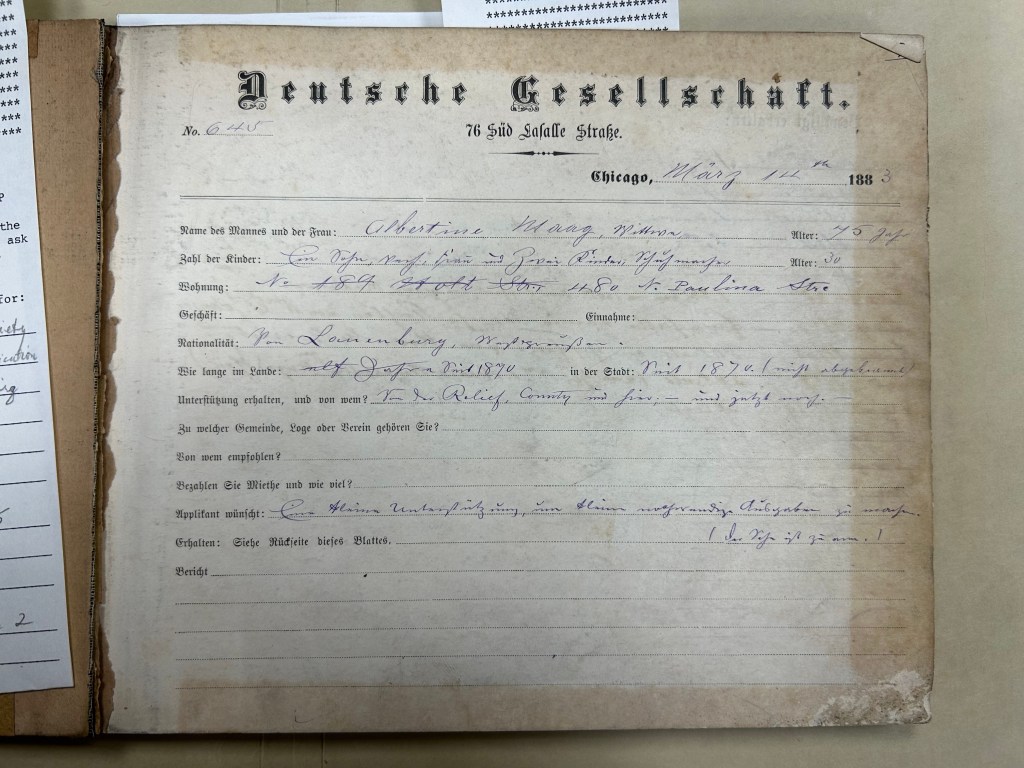 ***************
***************
***************
**
***
***
***
***
****
****
****
****
P
the
ask
for:
iety
ication
2
Deutsche Gesellschaft.
No. 645
76 Süd Lasalle Straße.
Chicago, März 14th 1883
Name des Mannes und der Frau: Albertine Maag, Wittwe, Alter: 75 Jahr
Zahl der Kinder: Ein Sohn, verh., Frau und Zwei Kinder, Schuhmacher Alter: 30
Wohnung: No 489 Holt Str. 480 N. Paulina Str
Geschäft: Einnahme:
Nationalität: Von Lauenburg, Westpreußen.
Wie lange im Lande: elf Jahre Seit 1870 in der Stadt: Seit 1870. (nicht abgebrannt)
Unterstützung erhalten, und von wem? Von der Relief, County und hier, — und jetzt noch. —
Zu welcher Gemeinde, Loge oder Verein gehören Sie?
Von wem empfohlen?
Bezahlen Sie Miethe und wie viel?
Applikant wünscht: Eine kleine Unterstützung, um kleine nothwendige Ausgaben zu machen.
Erhalten: Siehe Rückseite dieses Blattes. (Der Sohn ist zu arm.)
Bericht